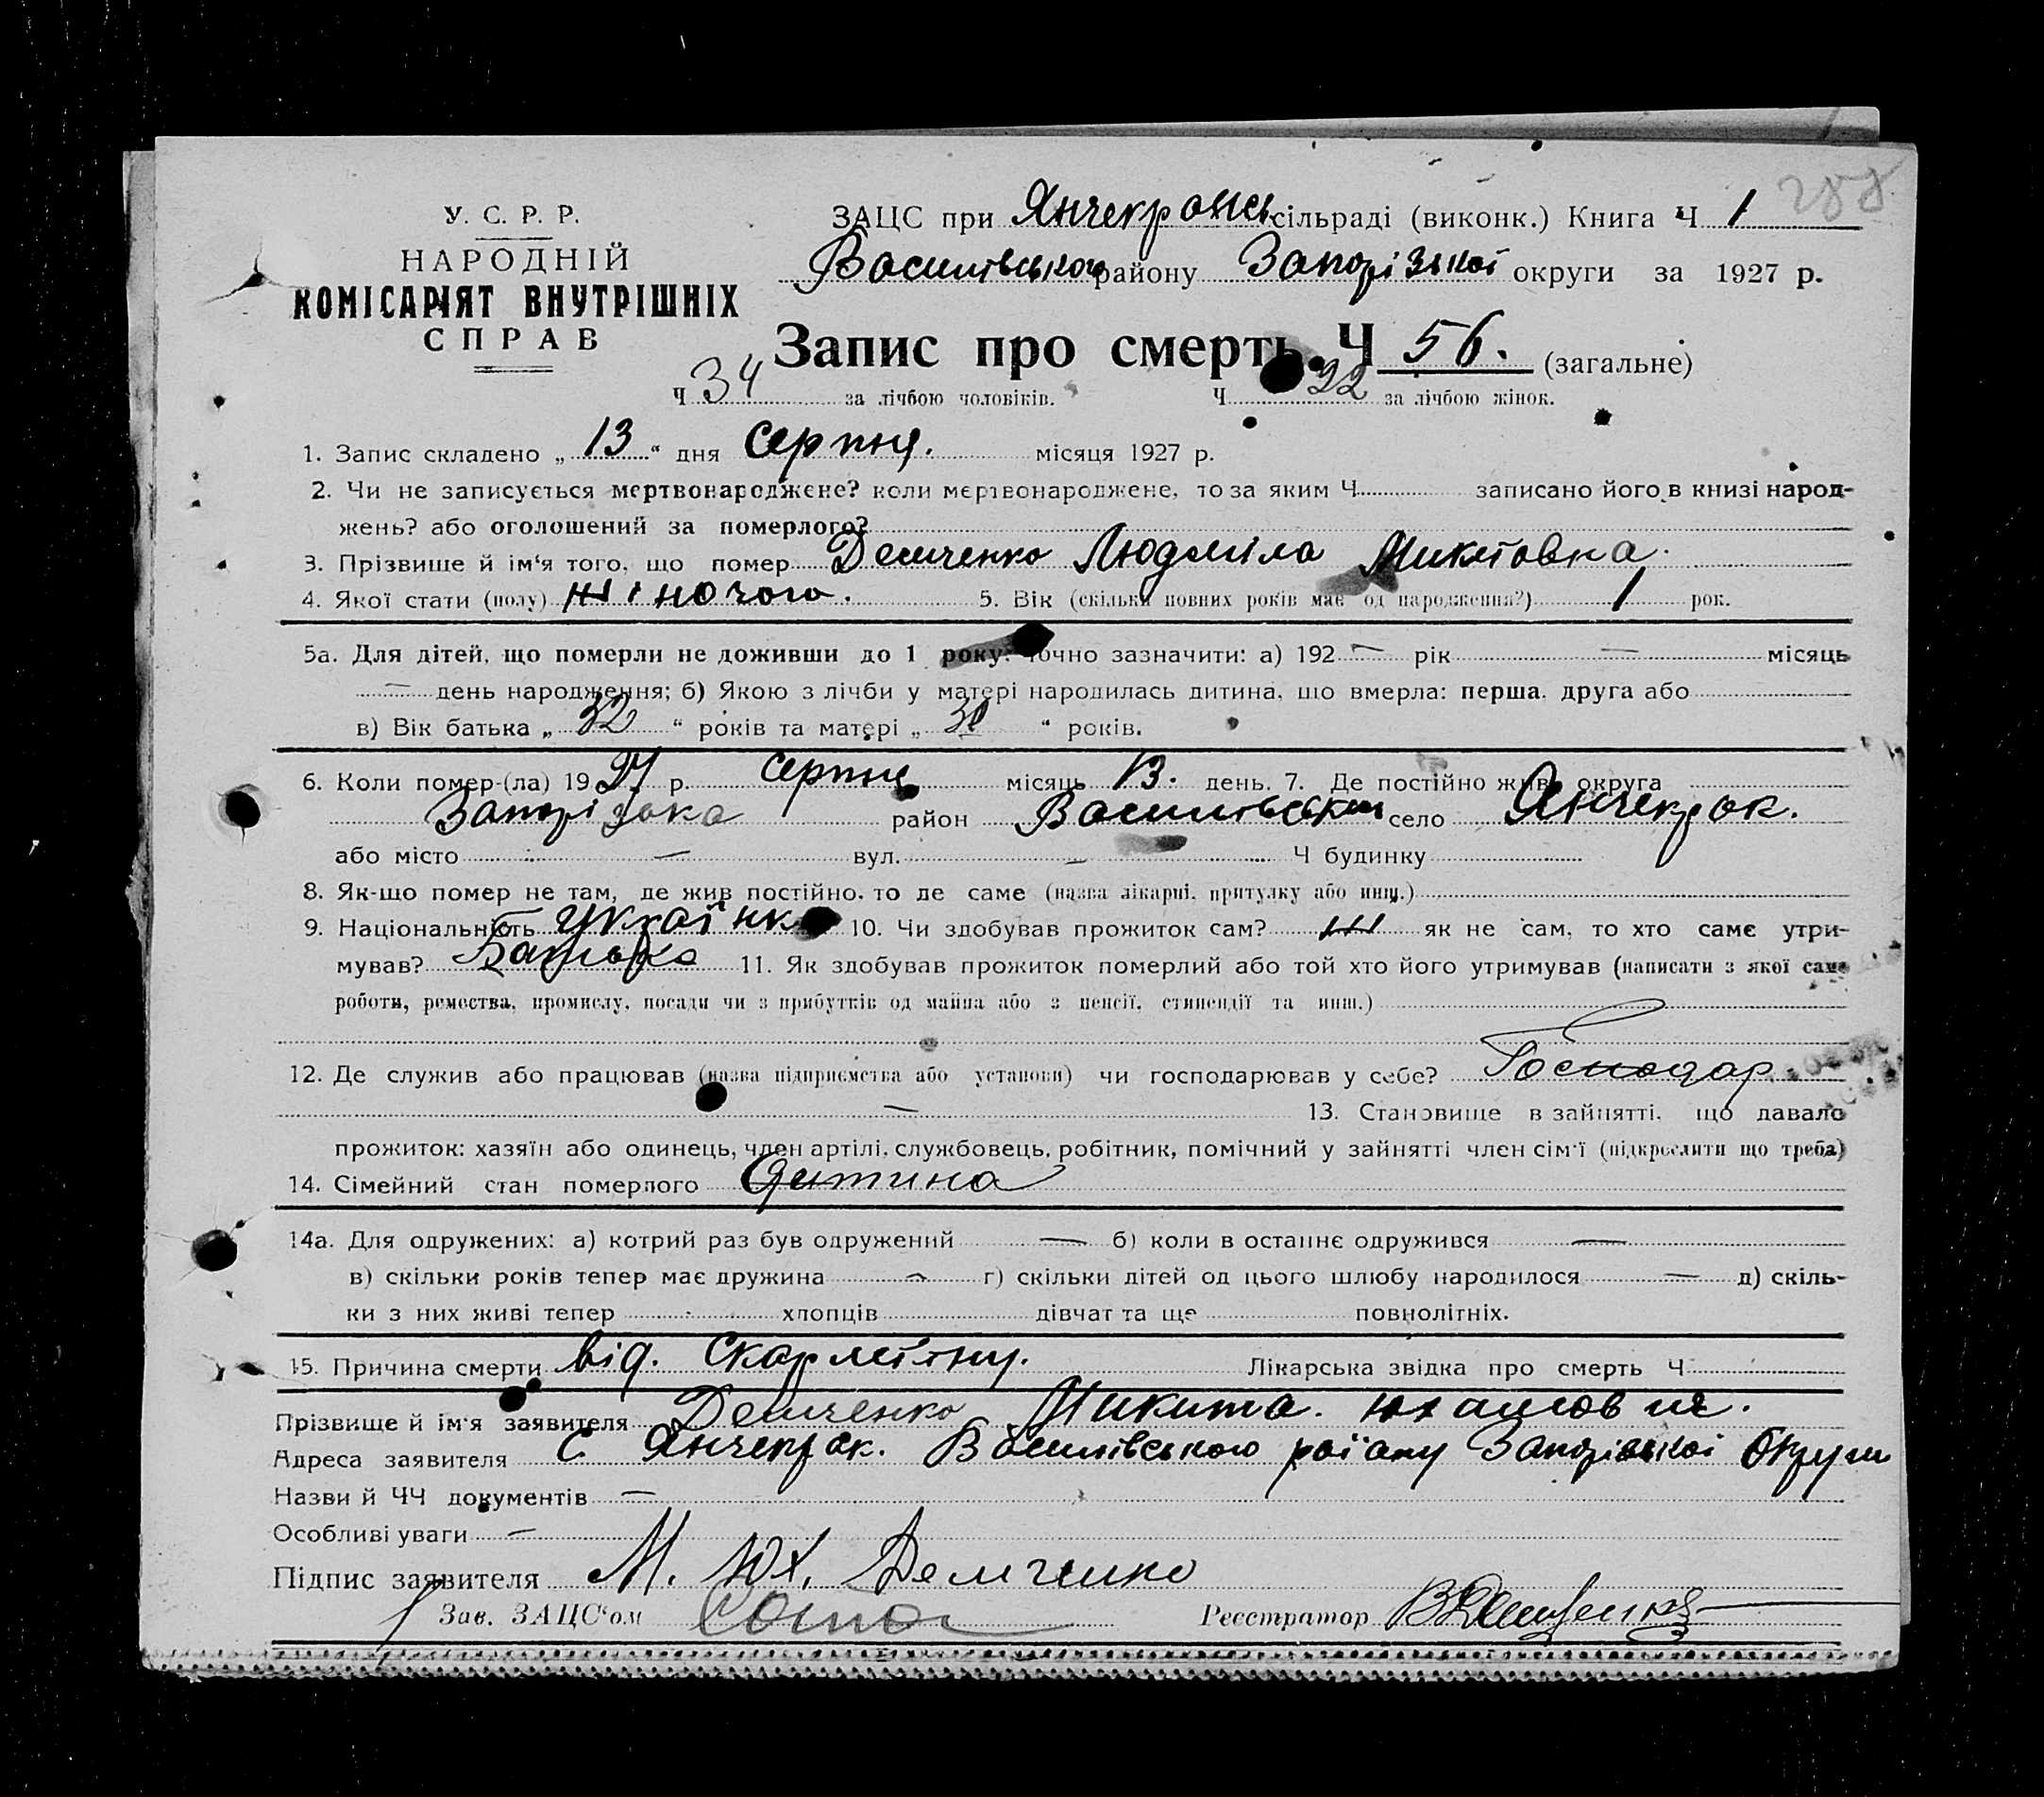 288
У. С. Р. Р.
НАРОДНІЙ
КОМІСАРІЯТ ВНУТРІШНІХ
СПРАВ
ЗАЦС при Янчекранськ сільраді (виконк.) Книга Ч 1
Василівського району Запорізької округи за 1927 р.
Запис про смерть. Ч 56. (загальне)
Ч 34 за лічбою чоловіків. Ч 22 за лічбою жінок.
1. Запис складено „ 13 “ дня Серпня. місяця 1927 р.
2. Чи не записується мертвонароджене? коли мертвонароджене, то за яким Ч записано його в книзі народ-
жень? або оголошений за померлого?
3. Прізвище й ім‘я того, що помер Демченко Людміла Микітовна.
4. Якої стати (полу) жіночого. 5. Вік (скільки повних років має од народження?) 1 рок.
5а. Для дітей, що померли не доживши до 1 року: точно зазначити: а) 192 — рік — місяць
— день народження; б) Якою з лічби у матері народилась дитина, що вмерла: перша, друга або
в) Вік батька „ 32 “ років та матері „ “ років.
6. Коли помер-(ла) 1927 р. серпня місяць 13. день. 7. Де постійно жив: округа
Запорізька район Василівський село Янчекрак.
або місто — вул. — Ч будинку
8. Як-що помер не там, де жив постійно, то де саме (назва лікарні, притулку або инш.)
9. Національність Українка 10. Чи здобував прожиток сам? як не сам, то хто саме утри-
мував? Батько 11. Як здобував прожиток померлий або той хто його утримував (написати з якої саме
роботи, ремества, промислу, посади чи з прибутків од майна або з пенсії, стипендії та инш.)
12. Де служив або працював (назва підприємства або установи) чи господарював у себе? Господар.
— 13. Становище в зайнятті, що давало
прожиток: хазяїн або одинець, член артілі, службовець, робітник, помічний у зайнятті член сім‘ї (підкреслити що треба)
14. Сімейний стан померлого Дитина
14а. Для одружених: а) котрий раз був одружений — б) коли в останнє одружився —
в) скільки років тепер має дружина — г) скільки дітей од цього шлюбу народилося — д) скіль-
ки з них живі тепер хлопців дівчат та ще повнолітніх.
15. Причина смерти від. Скарлетіни. Лікарська звідка про смерть Ч
Прізвище й ім‘я заявителя Демченко Микита. Юхимович.
Адреса заявителя С Янчекрак. Василівського раїону Запорізької Округи
Назви й ЧЧ документів —
Особливі уваги —
Підпис заявителя М. Юх. Демченко
Зав. ЗАЦС‘ом Реєстратор